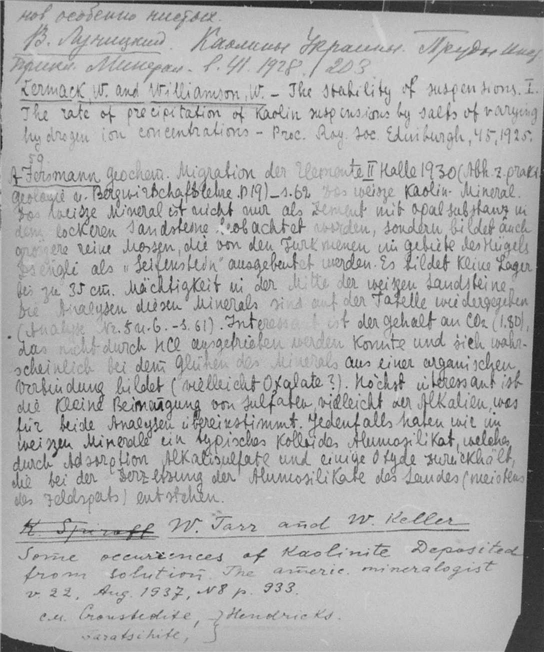 нов особенно чистых.
В. Лучицкий. Каолины Украины. Труды Инст
Прикл. Минерал. в. 41. 1928. / 203
Kermack, W. and Williamson, W. – The stability of suspensions. I.
The rate of precipitation of Kaolin suspensions by salts of varying
hydrogen ion concentrations – Proc. Roy. Soc. Edinburgh, 45, 1925.
59.
A. Fersmann Geochem. Migration der Elemente II Halle 1930 (Abh. z. prakt
Geologie u. Bergwirtschaftslehre. B 19) – s. 62 Das weisse Kaolin-Mineral.
Das weisse Mineral ist nicht nur als Cement mit Opalsubstanz in
dem lockeren Sandsteine beobachtet worden, sondern bildet auch
grössere reine Massen, die von den Turkmenen im Gebiete des Hügels
als „Seifenstein" ausgebeutet werden. Es bildet kleine Lager
bis zu 35 cm. Mächtigkeit in der Mitte der weissen Sandsteine.
Die Analysen dieses Minerals sind auf der Tafelle wiedergegeben
(Analyse Nr. 5 u. 6. – s. 61). Interessant ist der Gehalt an CO2 (1.80),
das nicht durch HCl ausgetrieben werden konnte und sich wahr-
scheinlich bei dem Glühen des Minerals aus einer organischen
Verbindung bildet (vielleicht Oxalate?). Höchst interessant ist
die kleine Beimengung von Sulfaten vielleicht der Alkalien, was
für beide Analysen übereinstimmt. Jedenfalls haben wir im
weissen Minerale ein typisches kolloides Alumosilikat, welches
durch Adsorption Alkalisulfate und einige Oxyde zurückhält,
die bei der Zersetzung der Alumosilikate des Sandes (meistens
des Feldspats) entstehen.
K. Spiroff W. Tarr and W. Keller
Some occurrences of Kaolinite Deposited
from solution. The americ. mineralogist
v. 22, Aug. 1937, N8 p. 933.
см. Cronstedite, } Hendricks.